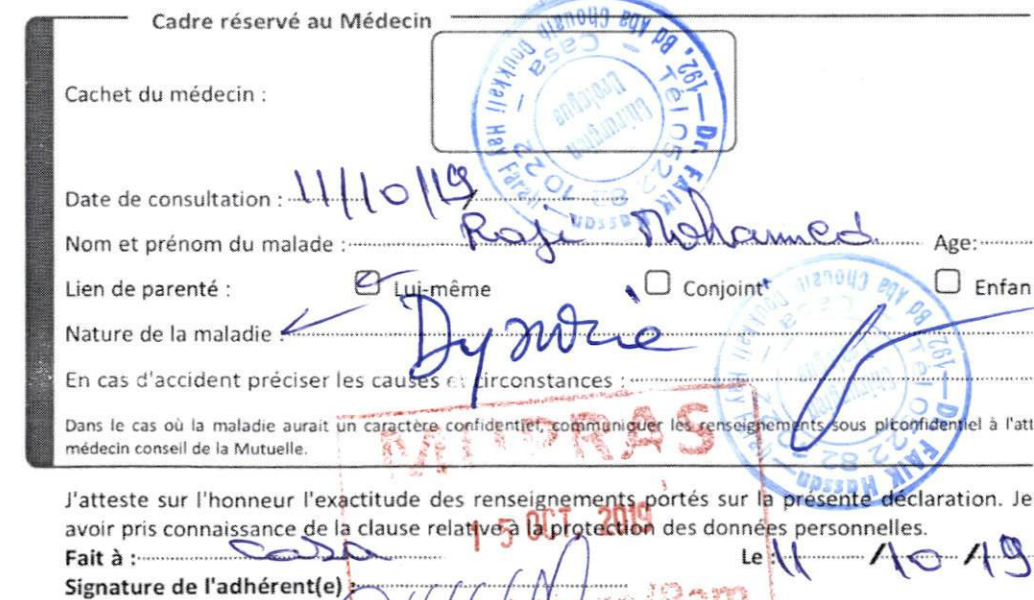 Cadre réservé au Médecin
Cachet du médecin :
192, Bd Aba Chouaib Doukkali Hay Farah
Dr. FAIK Hassan
Casa - Tél 0522 82 10 22
Chirurgien
Urologue
Date de consultation : 11/10/19
Nom et prénom du malade : Raji Mohamed Age:
Lien de parenté : Lui-même Conjoint Enfan
Nature de la maladie : Dysurie
En cas d'accident préciser les causes et circonstances :
Dans le cas où la maladie aurait un caractère confidentiel, communiquer les renseignements sous pli confidentiel à l'att
médecin conseil de la Mutuelle.
MUPRAS
J'atteste sur l'honneur l'exactitude des renseignements portés sur la présente déclaration. Je
avoir pris connaissance de la clause relative à la protection des données personnelles.
15 OCT. 2019
Fait à : casa Le 11 10 19
Signature de l'adhérent(e) :